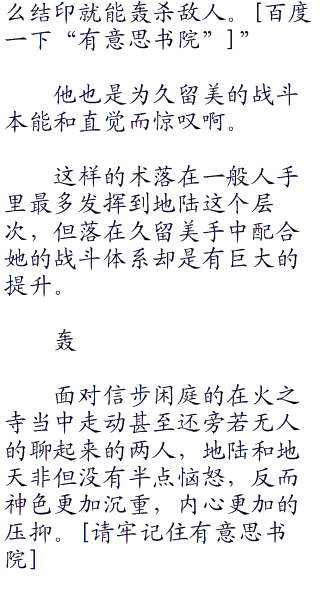 么结印就能轰杀敌人。[百度
一下“有意思书院”]”
他也是为久留美的战斗
本能和直觉而惊叹啊。
这样的术落在一般人手
里最多发挥到地陆这个层
次，但落在久留美手中配合
她的战斗体系却是有巨大的
提升。
轰
面对信步闲庭的在火之
寺当中走动甚至还旁若无人
的聊起来的两人，地陆和地
天非但没有半点恼怒，反而
神色更加沉重，内心更加的
压抑。[请牢记住有意思书
院]